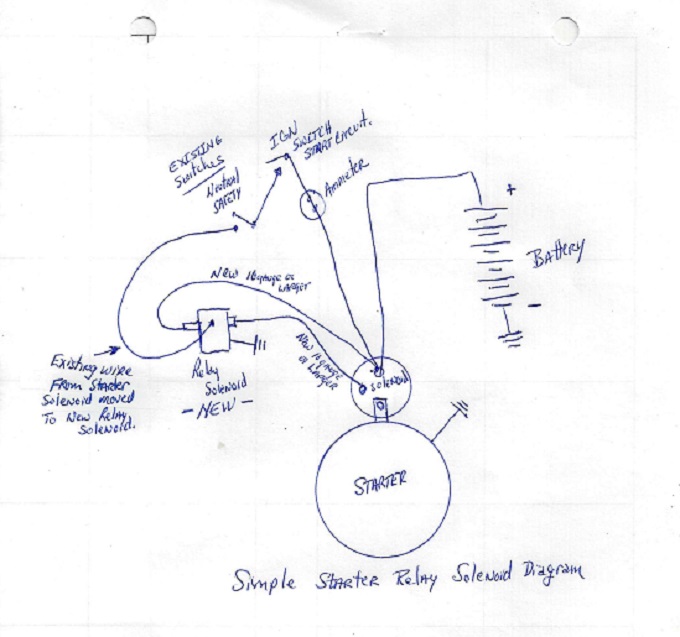 IGN
SWITCH
START CIRCUIT.
EXISTING
Switches
NEUTRAL
SAFETY
AMMETER
+
BATTERY
-
NEW 10 GAUGE OR
LARGER
NEW 10 GAUGE
OR LARGER
Existing wire
From Starter
Solenoid moved
To New Relay
Solenoid.
Relay
Solenoid
- NEW -
SOLENOID
STARTER
Simple Starter Relay Solenoid Diagram